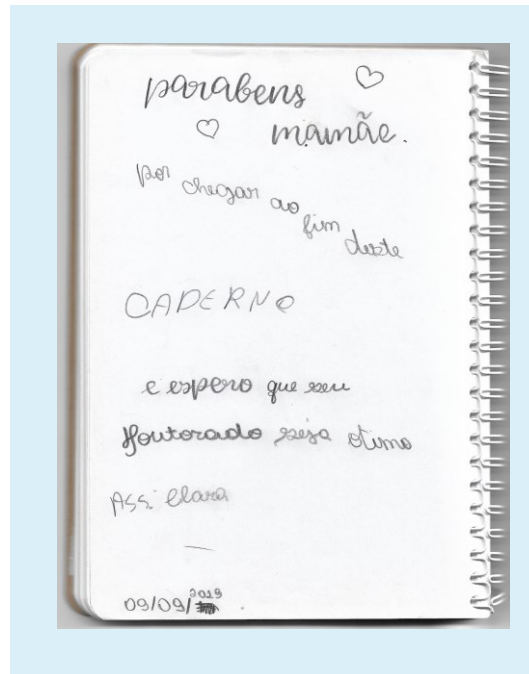 parabens
mamãe.
por chegar ao fim deste
CADERNO
e espero que seu
doutorado seja otimo
Ass: Clara
09/09/2019